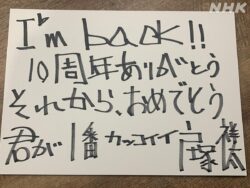 NHK
I'm back!!
10周年ありがとう
それから、おめでとう
君が1番カッコイイ戸塚祥太